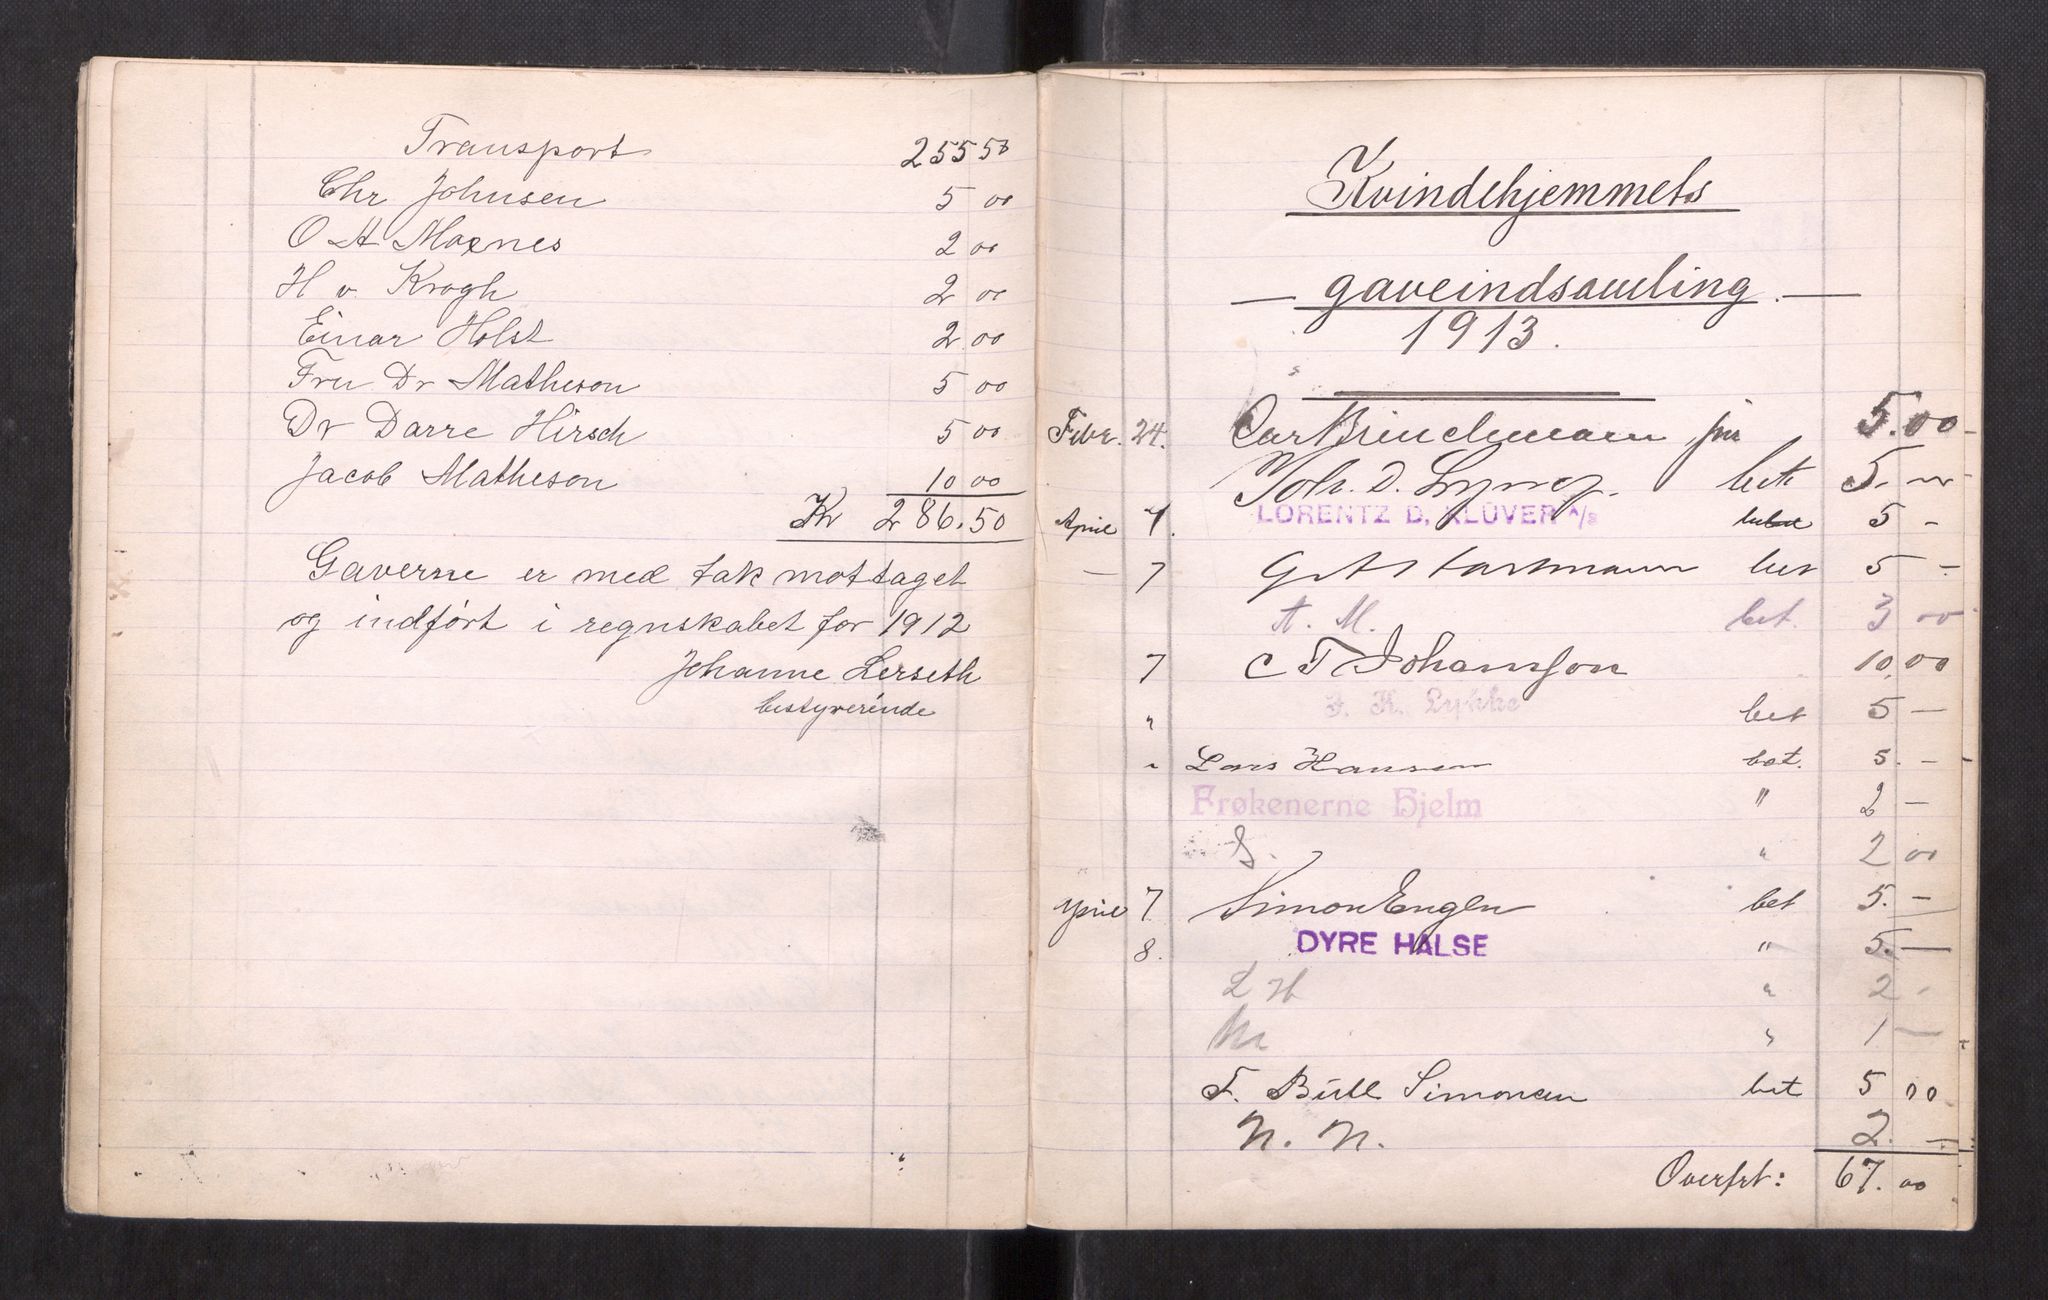 Transport 255 50
Chr Johnsen 5 00
O A Moxnes 2 00
H v. Krogh 2 00
Einar Holst 2.00
Fru Dr Matheson 5 00
Dr Darre Hirsch 5 00
Jacob Matheson 10 00
Kr 286.50
Gaverne er med tak mottaget
og indført i regnskabet for 1912
Johanne Lerseth
bestyrerinde
Kvindehjemmets
— gaveindsamling. —
1913.
Febr. 24. Carl Brinchmann jur 5.00
Joh. D. bet 5.
April 7. LORENTZ D. KLÜVER A/S betalt 5 -
— 7 Hartmann bet 5 -
A. M. bet. 3 00
7 C T Johansson 10,00
" F. K. Lykke bet 5 —
" Lars Hansen bet. 5. -
Frøkenerne Hjelm " 2 —
S. " 2 00
April 7 Simon Engen bet 5. —
8. DYRE HALSE " 5. —
L H " 2 -
" 1 —
F. Bull Simonsen bet 5 00
N. N. 2. —
Overfrt: 67.00